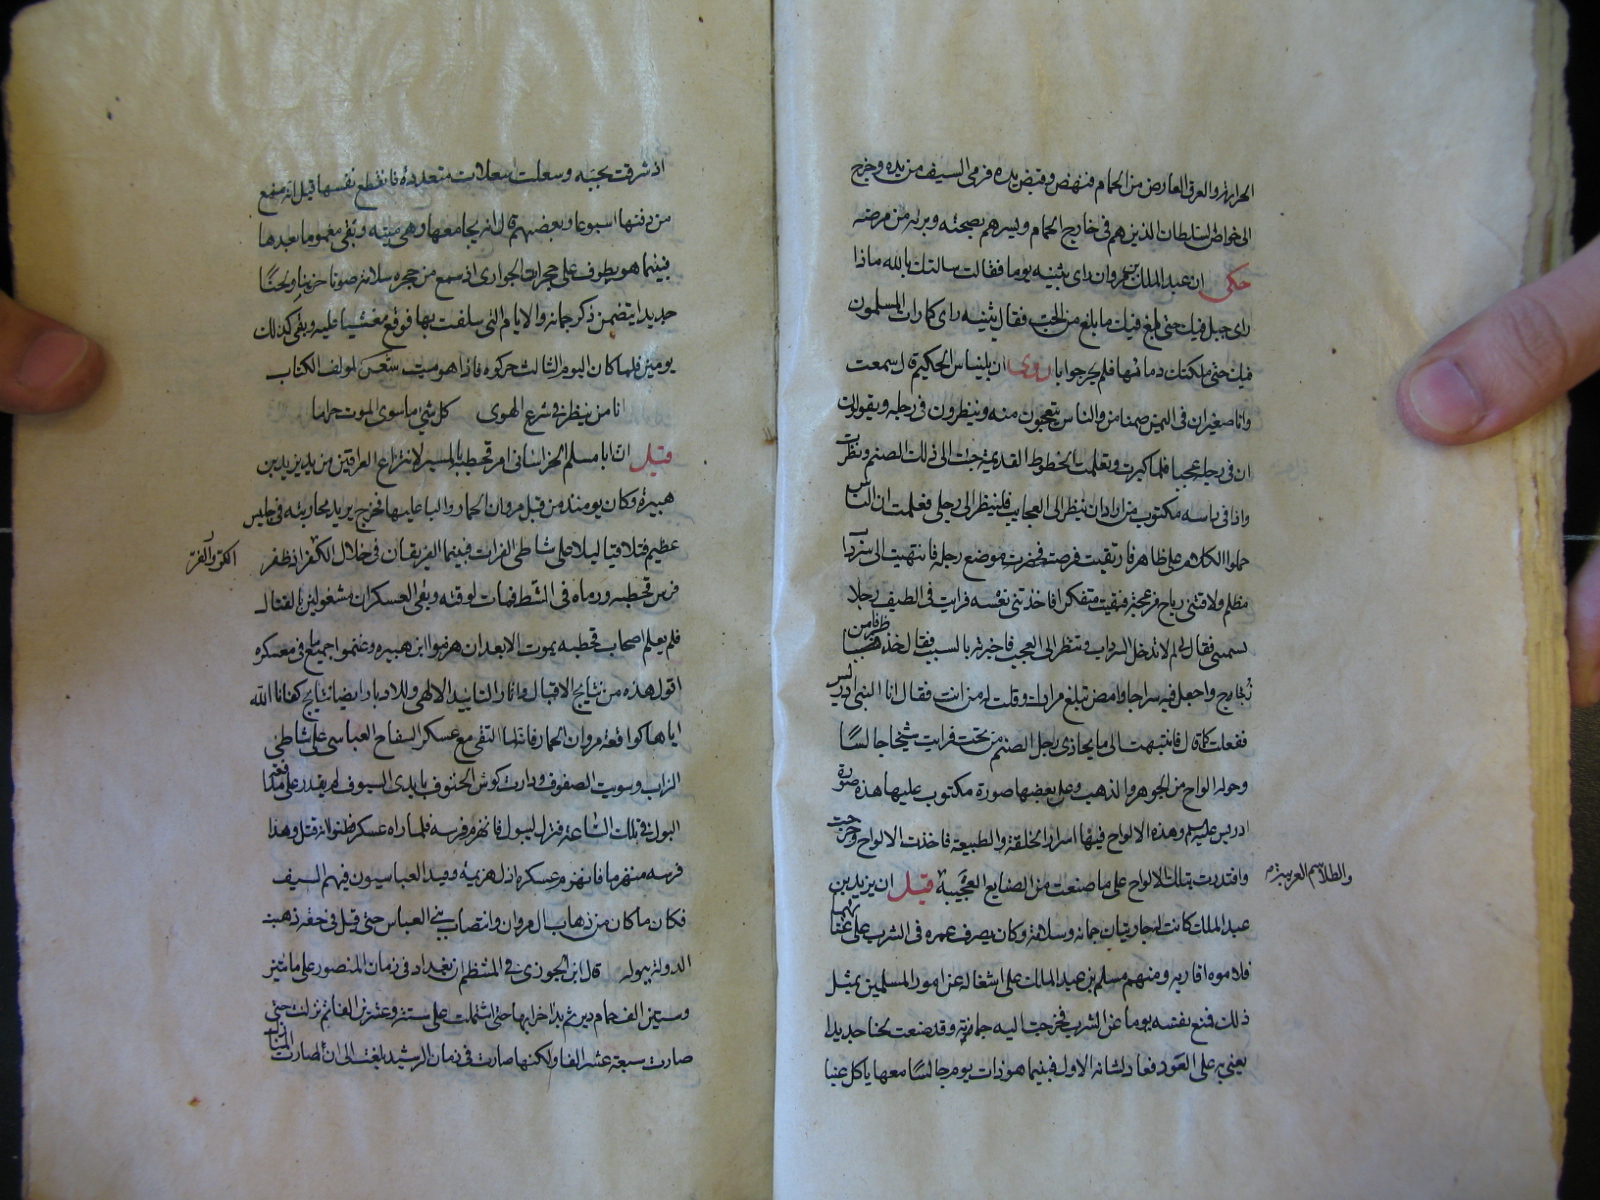 الحرارة والعرق العارض من الحمام فنهض وقبض بيده فرمى السيف من يده وخرج
الى خواص السلطان الذين هم في خارج الحمام ويسرهم بصحته وبرئه من مرضه
حكى ان عبد الملك بن مروان راى بثينه يوما فقالت سالتك بالله ماذا
راى جميل فيك حتى بلغ فيك ما بلغ من الحب فقال بثينه راى كما راى المسلمون
فيك حتى ملكتك دماءها فلم يحر جوابا روى ان بليناس الحكيم قال سمعت
وانا صغير ان في اليمن صنما من والناس يتعجبون منه وينظرون في رجله ويقولون
ان في رجله عجبا فلما كبرت وتعلمت الخطوط القديمة جئت الى ذلك الصنم ونظرت
واذا في راسه مكتوب من اراد ان ينظر الى العجايب فلينظر الى رجلي فعلمت ان الناس
حملوا الكلام على ظاهره فارتقبت فرصته فحفرت موضع رجله فانتهيت الى سرداب
مظلم ولاقتني رياح مزعجة فبقيت متفكرا فاخذتني نعسه فرايت في الطيف رجلا
يسمى فقال لي لم لا تدخل السرداب وتنظر الى العجب فاخبرته بالسبب فقال خذ ظرفا من
زجاج واجعل فيه سراجا وامض تبلغ مرادك وقلت له من انت فقال انا النبي ادريس
ففعلت كما قال فانتبهت الى ما يحاذى رجل الصنم من تحت فرايت شيخا جالسا
وحوله الواح من الجوهر والذهب وعلى بعضها صورة مكتوب عليها هذه صورة
ادريس عليه السلم وهذه الالواح فيها اسرار الخلقة والطبيعة فاخذت الالواح وخرجت
واقتدرت بتلك الالواح على ما صنعت من الصنايع العجيبة قيل ان يزيد بن
والطلاسم الغريبة م
عبد الملك كانت له جاريتان جمانه وسلامة وكان يصرف عمره في الشرب على غنائهما
فلاموه اقاربه ومنهم مسلم بن عبد الملك على اشغاله عن امور المسلمين بمثل
ذلك فمنع نفسه يوما عن الشرب فخرجت اليه جمانة وقد صنعت لحنا جديدا
يعني به على العود فعاد لشانه الاول فبينما هو ذات يوم جالسا معها ياكل عنبا
اذ شرقت بحبة وسعلت سعلات متعددة فانقطع نفسها قيل انه منع
من دفنها اسبوعا وبعضهم قال انه يجامعها وهي ميته وبقى مغموما بعدها
فبينما هو يطوف على حجرات الجوارى اذ سمع من حجره سلامة صوتا حزينا ولحنا
جديدا يتضمن ذكر جمانه والايام التى سلفت بها فوقع مغشيا عليه وبقى كذلك
يومين فلما كان اليوم الثالث حركوه فاذا هو ميت شعر لمولف الكتاب
انا من ينظر في شرع الهوى كل شيء ما سوى الموت حراما
قيل ان ابا مسلم الخراسانى امر قحطبه بالمسير لانتزاع العراقين من يد يزيد بن
هبيرة وكان يومئذ من قبل مروان الحمار واليا عليها فخرج يريد محاربته في جيش
عظيم فتلاقيا ليلا على شاطى الفرات فبينما الفريقان في خلال الكر اذ ظفر
الكر والفر
فرس قحطبه ورماه في الشط فمات لوقته وبقى العسكران مشغولين بالقتال
فلم يعلم اصحاب قحطبه بموته الا بعد ان هزموا ابن هبيره وغنموا جميع ما في معسكره
اقول هذه من نتايج الاقبال واثار التاييد الالهى وللادبار ايضا نتايج كفانا الله
اياها كواقعة مروان الحمار فانه لما التقى مع عسكر السفاح العباسى على شاطئ
الزاب وسويت الصفوف ودارت كوس الحتوف بايدى السيوف لم يقدر على مدافعة
البول في تلك الساعة فنزل ليبول فانهزم فرسه فلما راه عسكره ظنوا انه قتل وهذا
فرسه منهزما فانهزم عسكره اذل هزيمة وقيد العباسيون فيهم السيف
فكان ما كان من ذهاب ال مروان وانتصاب بنى العباس حتى قيل في حقه ذهبت
الدولة ببولة قال ابن الجوزى في المنتظم ان بغداد في زمان المنصور على مائتين
وستين الف حمام ثم بدا خرابها حتى اشتملت على ستة وعشرين الفا ثم نزلت حتى
صارت سبعة عشر الفا ولكنها صارت في زمان الرشيد بلغت الى ان صارت المنا